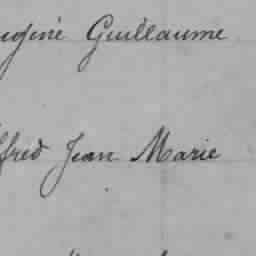 ugène Guillaume
lfred Jean Marie